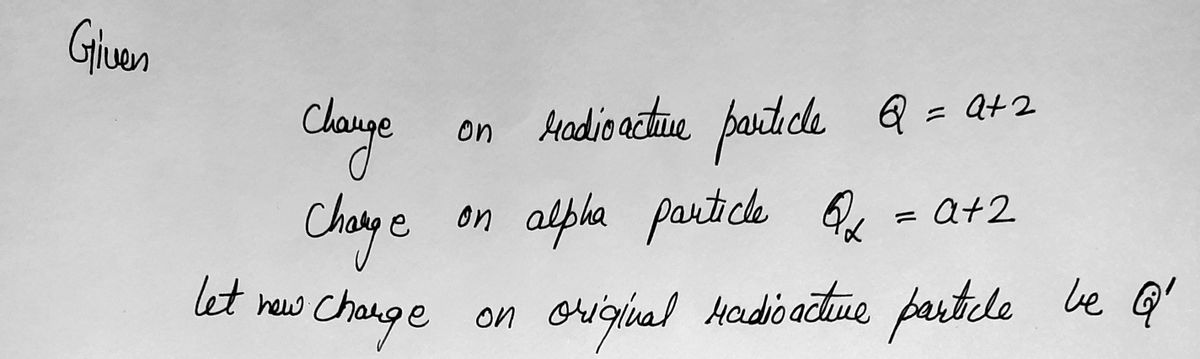 Given
Charge on radioactive particle Q = a+2
Charge on alpha particle Qα = a+2
let new charge on original radioactive particle be Q'